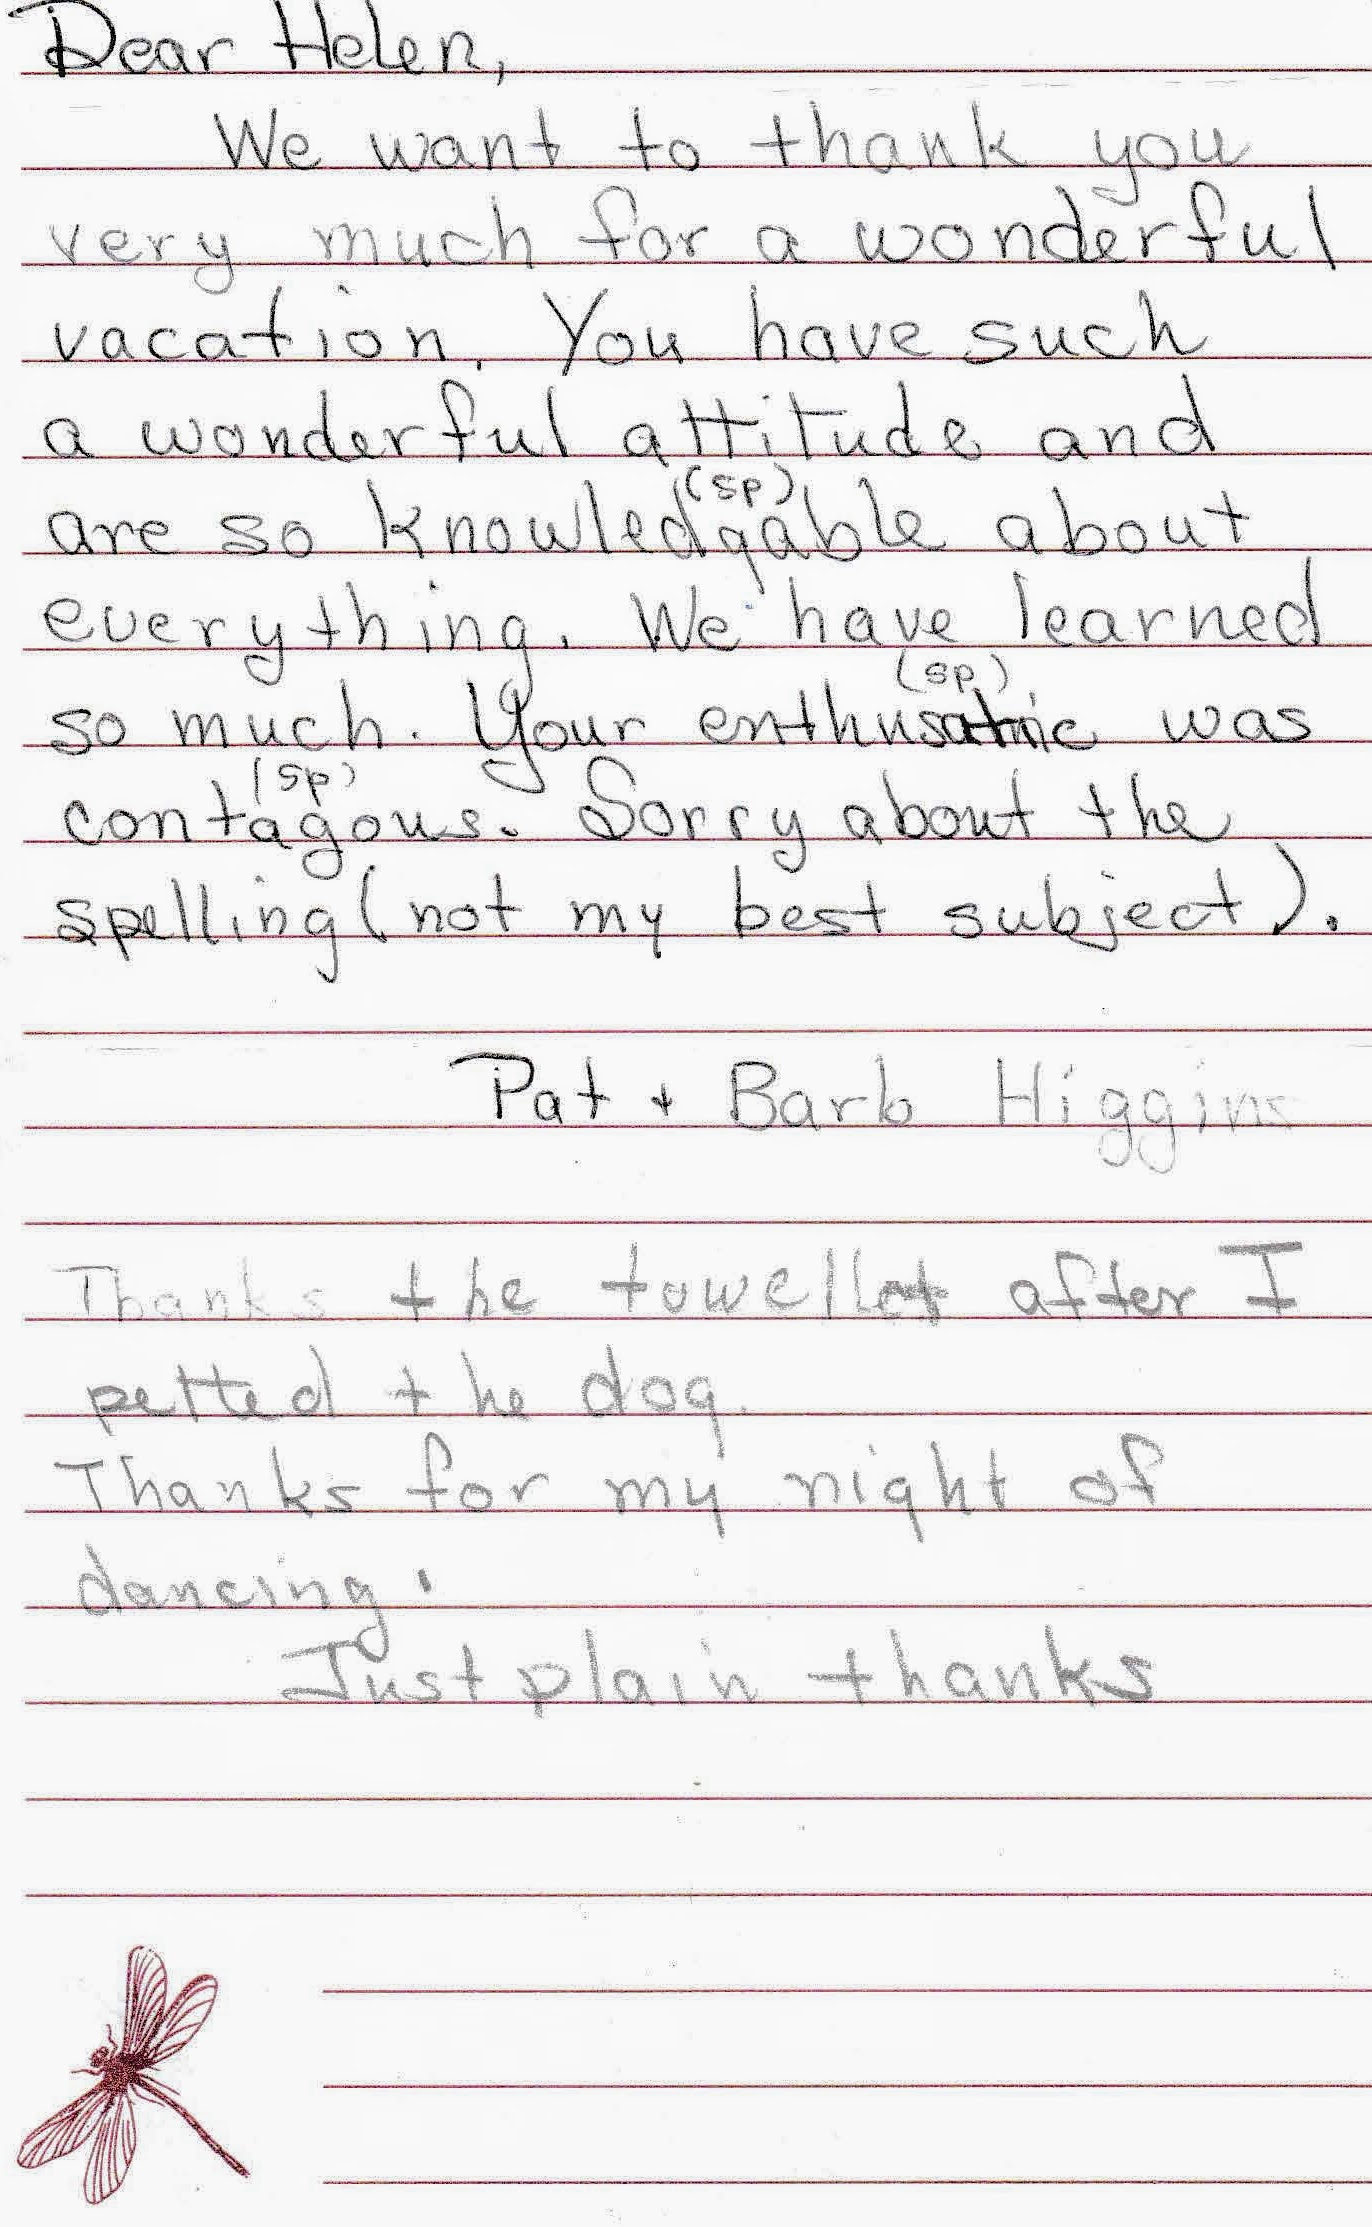 Dear Helen,
We want to thank you
very much for a wonderful
vacation. You have such
a wonderful attitude and
(sp)
are so knowledgable about
everything. We have learned
(sp)
so much. Your enthusatic was
(sp)
contagous. Sorry about the
spelling (not my best subject).
Pat + Barb Higgins
Thanks the towellet after I
petted the dog.
Thanks for my night of
dancing.
Just plain thanks